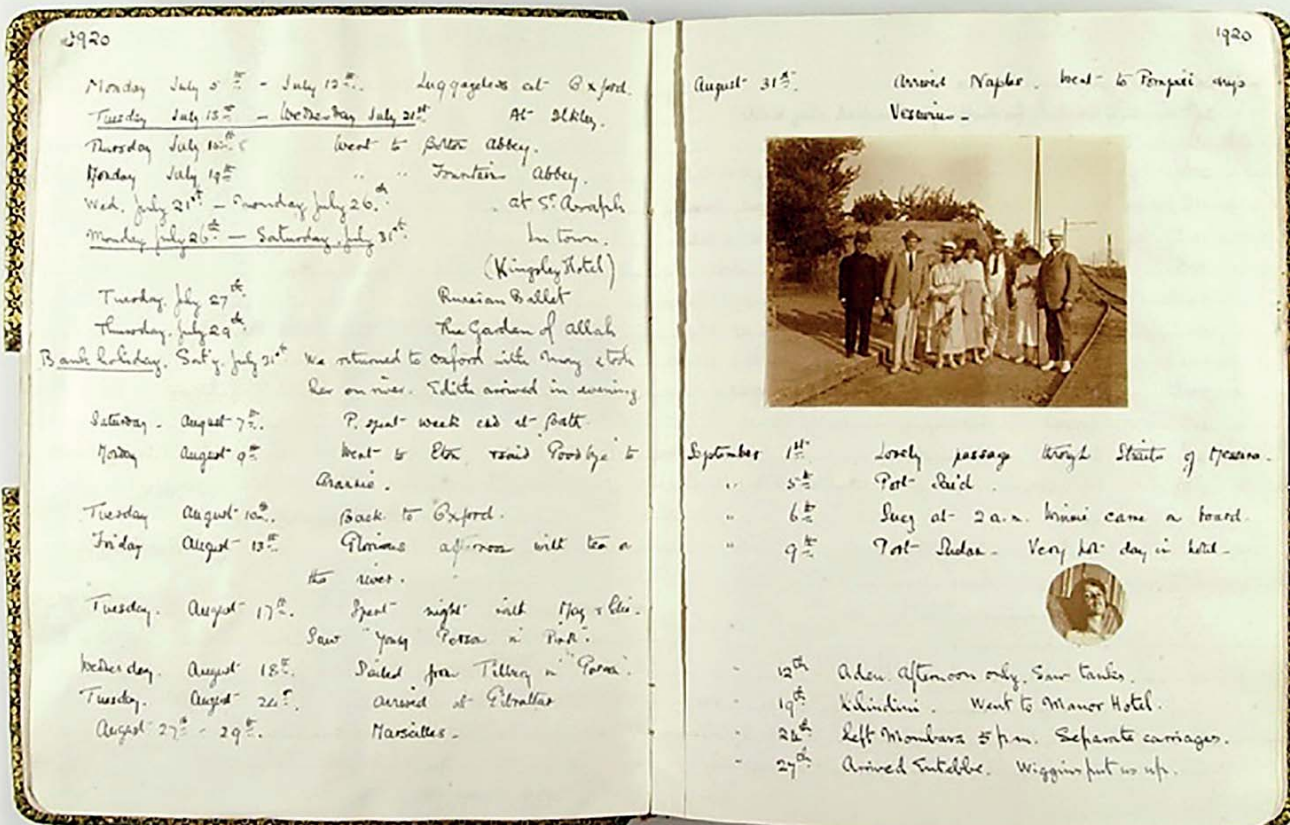 1920
Monday July 5th - July 12th. Luggageless at Oxford.
Tuesday July 13th - Wednesday July 21st At Ilkley.
Thursday July Went to Bolton Abbey.
Monday July 19th " " Fountains Abbey.
Wed. July 21st - Monday July 26th at St. Asaph
Monday July 26th - Saturday July 31st In town.
(Kingsley Hotel)
Tuesday, July 27th Russian Ballet
Thursday, July 29th The Garden of Allah
Bank holiday. Sat'y. July 31st We returned to Oxford with Mary & took
her on river. Edith arrived in evening.
Saturday. August 7th. P. spent week end at Bath.
Monday August 9th Went to Eton, & said "Goodbye" to
Tuesday August 10th. Back to Oxford.
Friday August 13th Glorious afternoon with tea on
the river.
Tuesday. August 17th. Spent night with May &
Saw "Young Person in Pink".
Wednesday August 18th. Sailed from Tilbury in
Tuesday. August 24th. arrived at Gibraltar
August 27th - 29th. Marseilles.
1920
August 31st. Arrived Naples. Went to Pompeii
Vesuvius -
September 1st Lovely passage through Straits of Messina.
" 5th Port Said.
" 6th Suez at 2 a.m. Winnie came on board.
" 9th Port Sudan - Very hot day in hotel -
" 12th Aden. Afternoon only. Saw tanks.
" 19th Kilindini. Went to Manor Hotel.
" 24th Left Mombasa 5 p.m. Separate carriages.
" 27th Arrived Entebbe. Wiggins put us up.